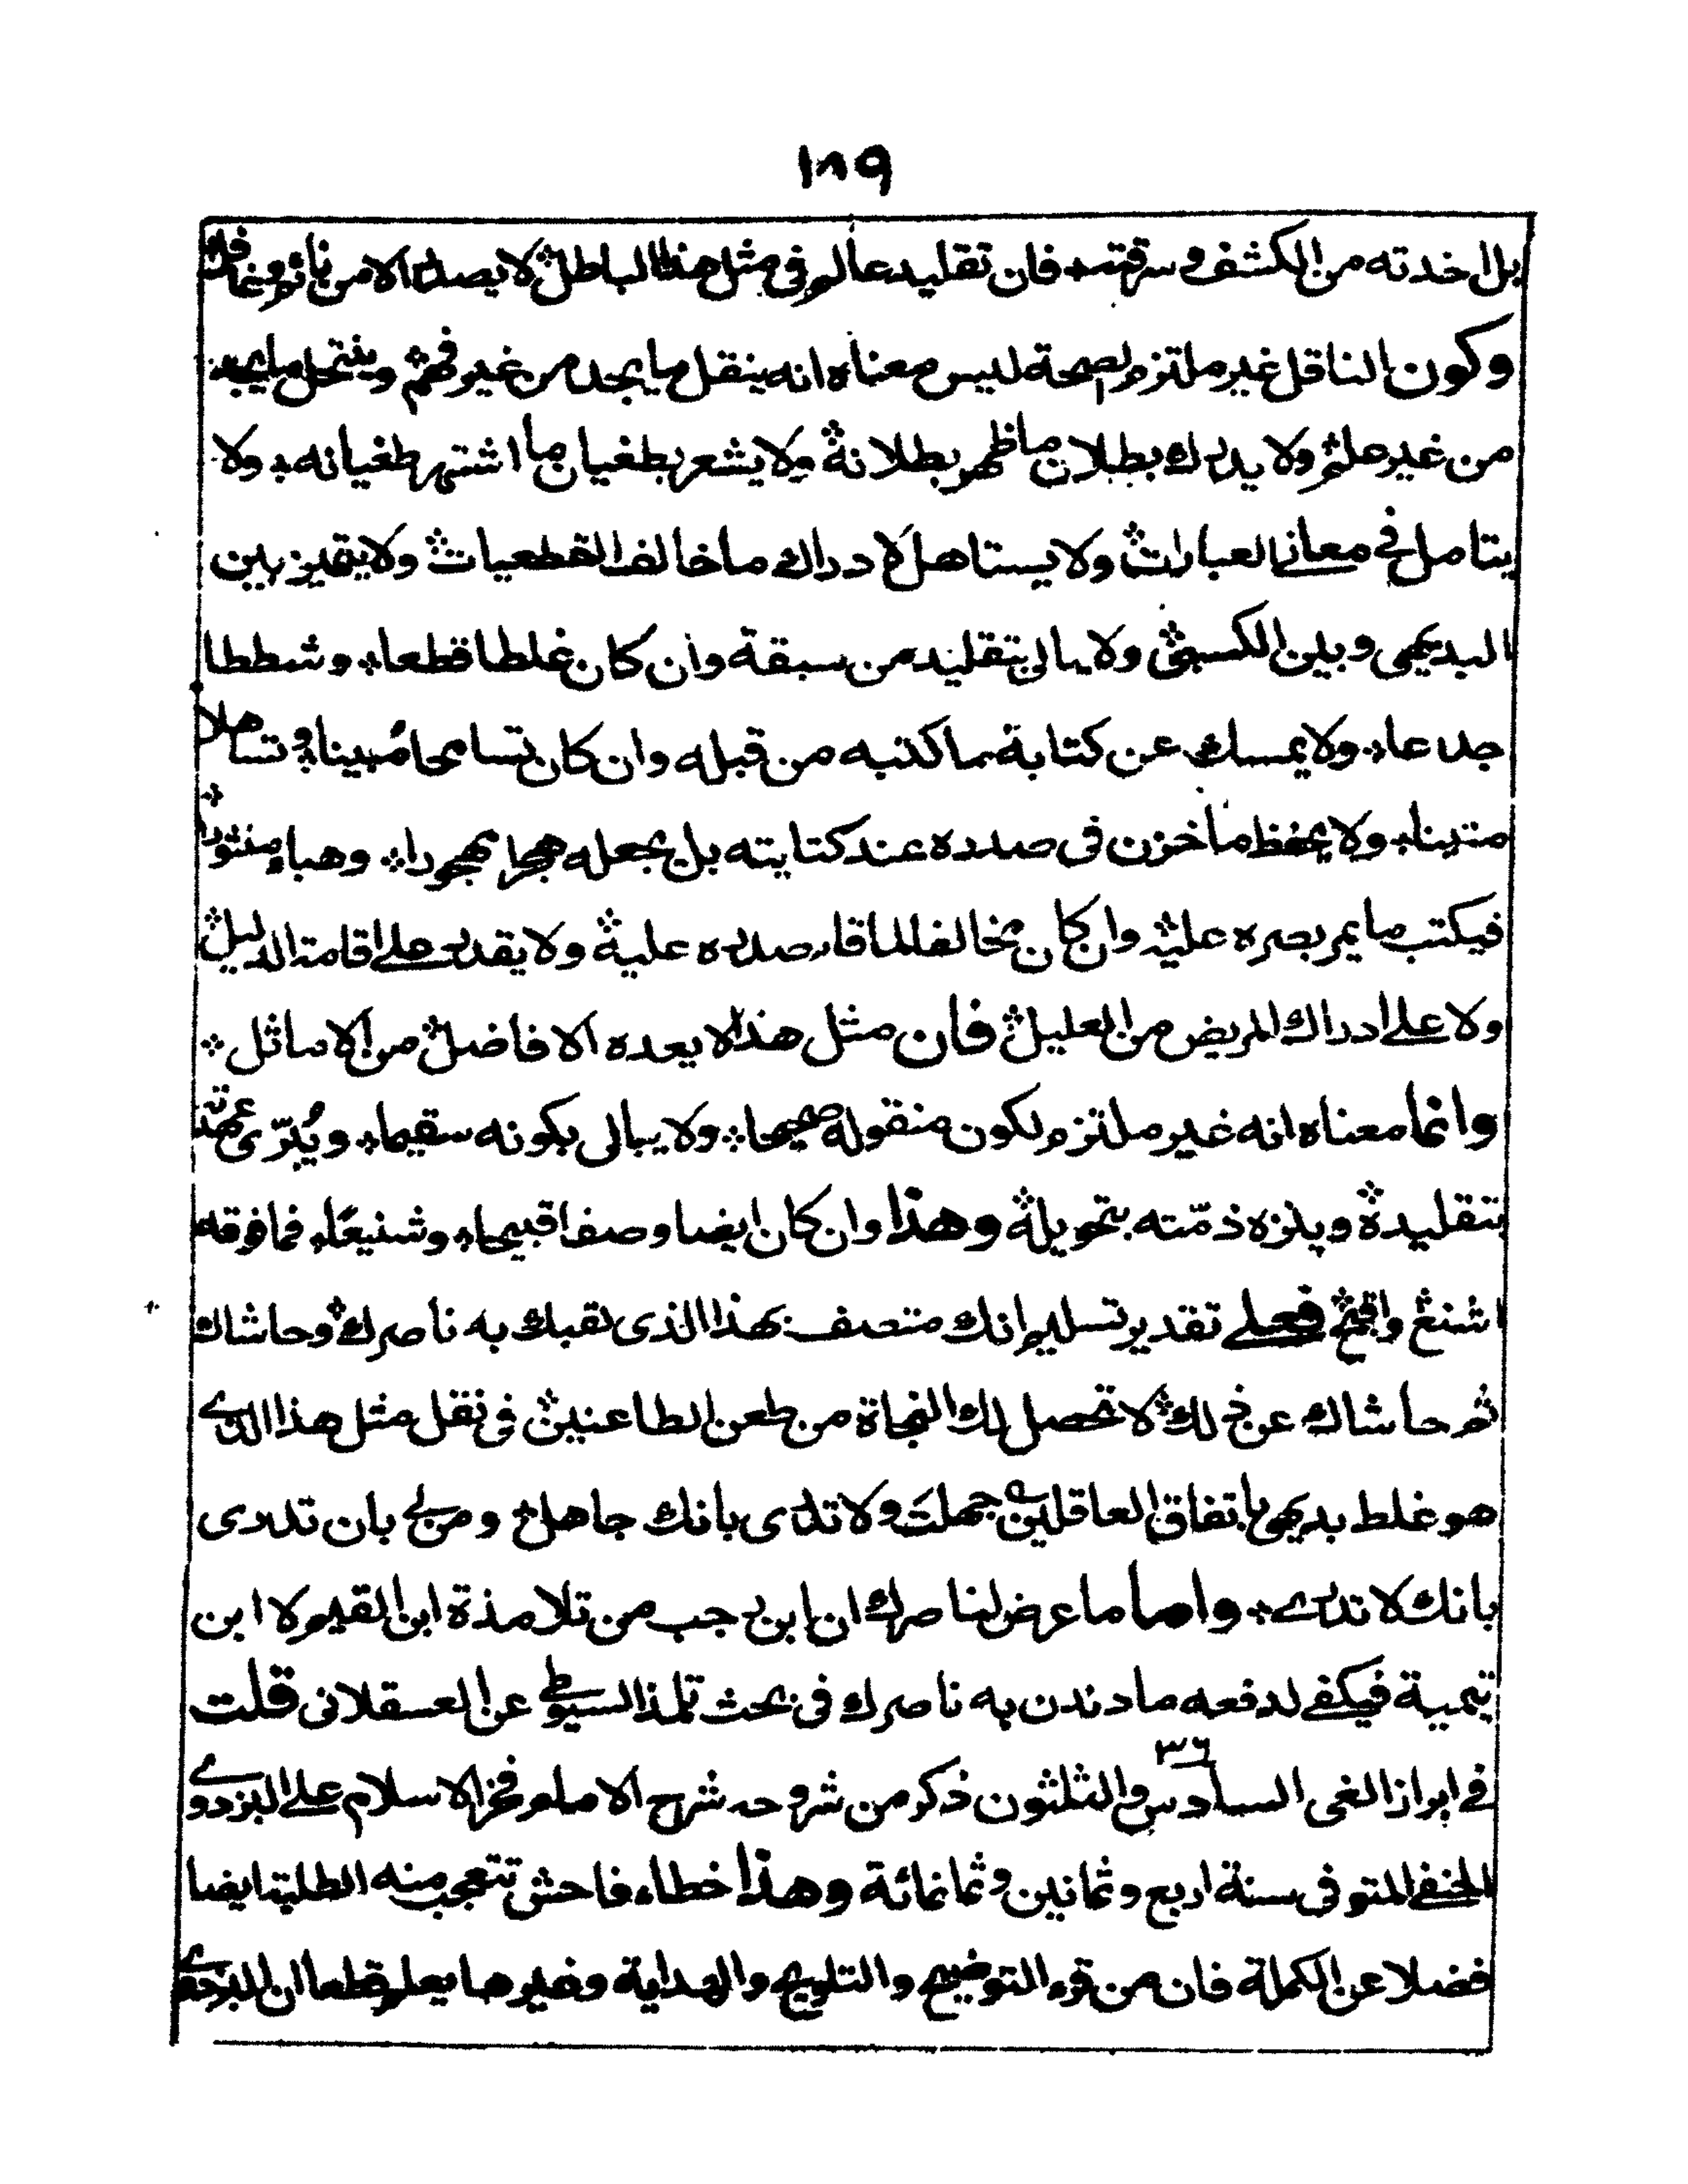 ١٨٩
بل اخذته من الكشف وسرقته ۞ فان تقليد عالم فى مثل هذا الباطل ۞ لا يصدر الا من نائم وغافل
وكون الناقل غير ملتزم لصحة ليس معناه انه ينقل ما يجد من غير فهم ۞ وينتحل ما يجد
من غير علم ۞ ولا يدرك بطلان ما ظهر بطلانه ۞ ولا يشعر بطغيان ما اشتهر طغيانه ۞ ولا
يتامل فى معانى العبارات ۞ ولا يستاهل لادراك ما خالف القطعيات ۞ ولا يتميز بين
البديهى وبين الكسبى ۞ ولا يبالى بتقليد من سبقه وان كان غلطا قطعا ۞ وشططا
جدعا ۞ ولا يمسك عن كتابة ما كتبه من قبله وان كان تسامحا مُبينا ۞ وتساهلا
متينا ۞ ولا يحفظ ما خزن فى صدره عند كتابته بل يجعله هجرا مهجورا ۞ وهباء منثورا ۞
فيكتب ما يمر بصره عليه ۞ وان كان مخالفا لما قاد صدره عليه ۞ ولا يقدر على اقامة الدليل ۞
ولا على ادراك المريض من العليل ۞ فان مثل هذا لا يعده الافاضل ۞ من الاماثل ۞
وانما معناه انه غير ملتزم لكون منقوله صحيحا ۞ ولا يبالى بكونه سقيما ۞ ويُبرّى عهدته
بتقليده ۞ وينزه ذمّته بتحويله ۞ وهذا وان كان ايضا وصفا قبيحا ۞ وشنيعًا ۞ فما فوقه
اشنع ۞ واقبح ۞ فعلى تقدير تسليم انك متصف بهذا الذى لقبك به ناصرك ۞ وحاشاك
ثم حاشاك عن ذلك ۞ لا تحصل لك النجاة من طعن الطاعنين ۞ فى نقل مثل هذا الذى
هو غلط بديهى باتفاق العاقلين ۞ جهلتَ ولا تدرى بانك جاهل ۞ ومن لى بان تدرى
بانك لا تدرى ۞ واما ما عرض لناصرك ان ابن رجب من تلامذة ابن القيم لا ابن
تيمية فيكفى لدفعه ما دندن به ناصرك فى بحث تلمذ السيوطى عن العسقلانى قلت
فى ابراز الغى السادس والثلثون ٣٦ ذكر من شروحه شرح الامام فخر الاسلام على البزدوى
الحنفى المتوفى سنة اربع وثمانين وثمانمائة وهذا خطاء فاحش تتعجب منه الطلبة ايضا
فضلا عن الكملة فان من قرء التوضيح والتلويح والهداية وغيرها يعلم قطعا ان البزدوى